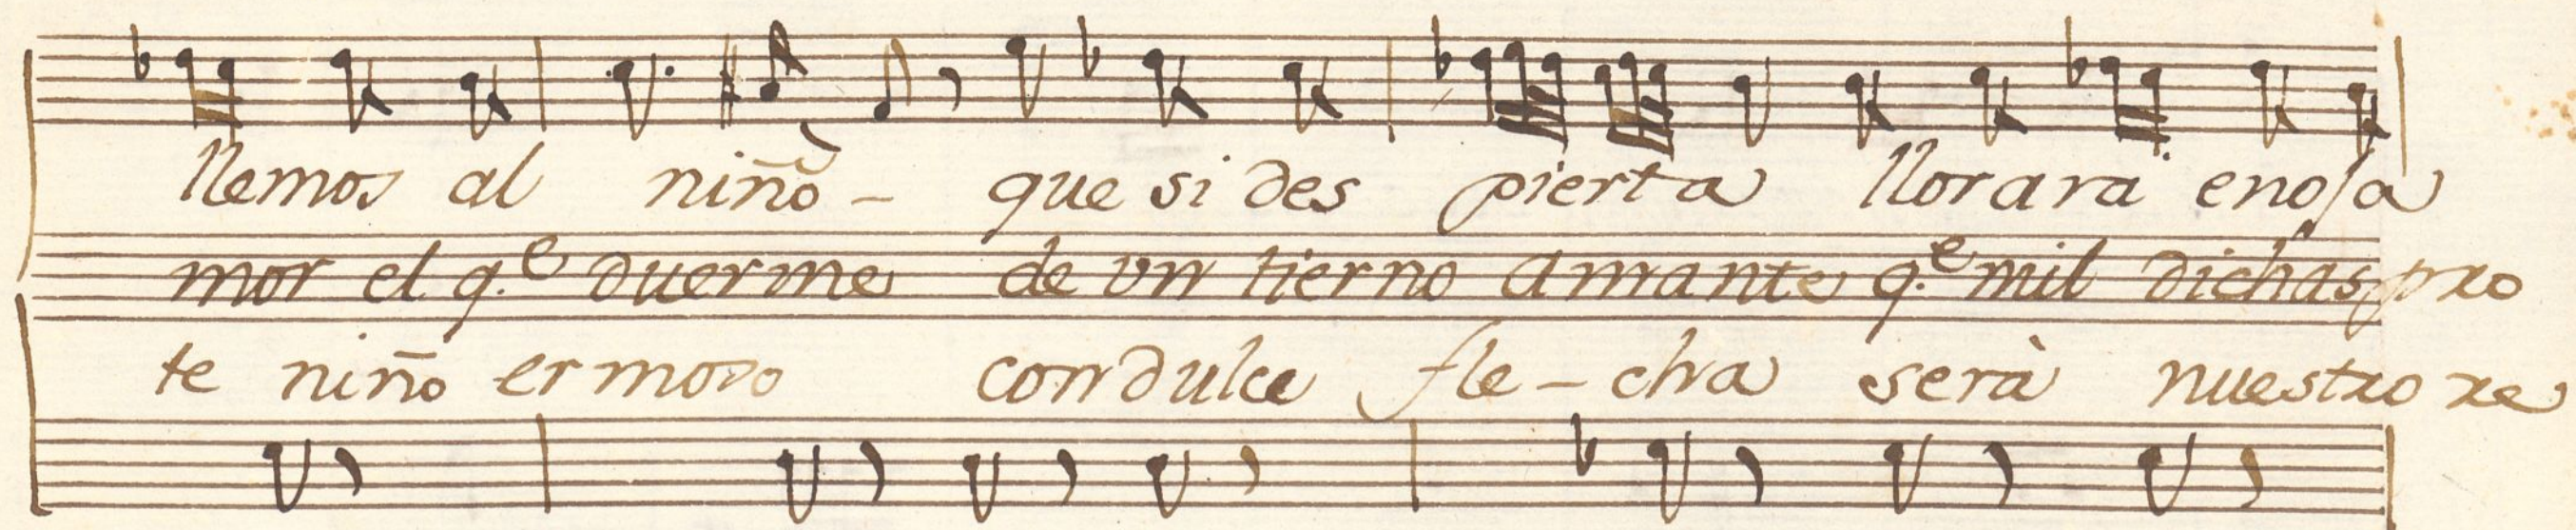 llemos al niño - que si des pierta llorara enoja
mor el q.e duerme de vn tierno amante q.e mil dichas pro
te niño ermoso con dulce fle - cha serà nuestro re